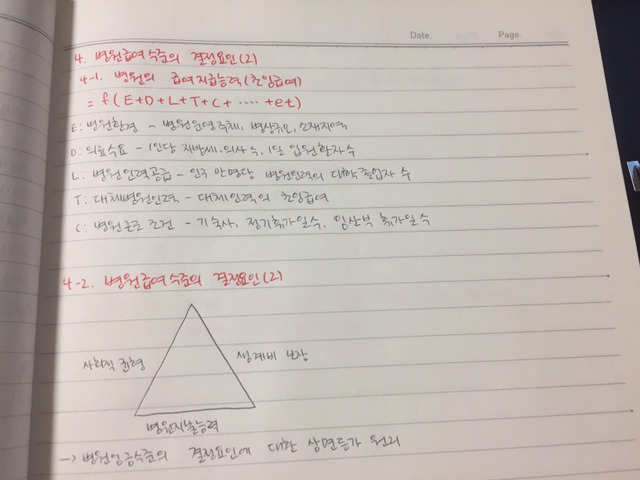 Date. Page.
4. 병원급여수준의 결정요인(2)
4-1. 병원의 급여지급능력(초임급여)
= f(E+D+L+T+C+ ···· +et)
E: 병원환경 - 병원운영주체, 병상규모, 소재지역
D: 의료수요 - 1인당 지방세, 의사 수, 1일 입원환자수
L: 병원인력공급 - 인구 만명당 병원인력의 대학졸업자 수
T: 대체병원인력 - 대체인력의 초임급여
C: 병원근로조건 - 기숙사, 정기휴가일수, 임산부 휴가일수
4-2. 병원급여수준의 결정요인(2)
사회적 균형
생계비 보장
병원지불능력
→ 병원임금수준의 결정요인에 대한 삼면등가 원리